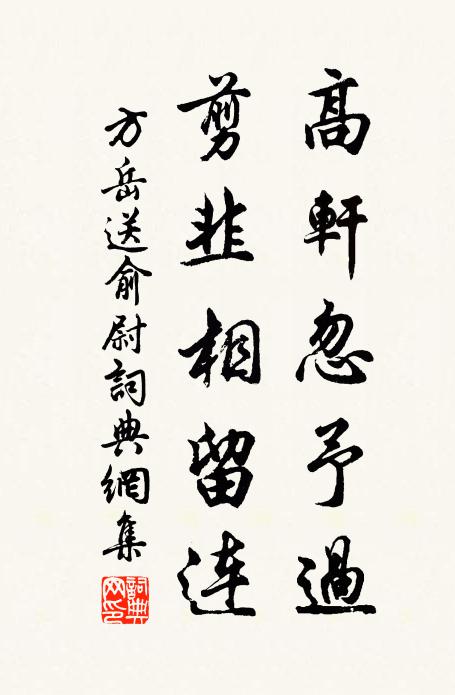 高軒忽予過
剪韭相留连
方岳送俞尉詞典網集
詞典